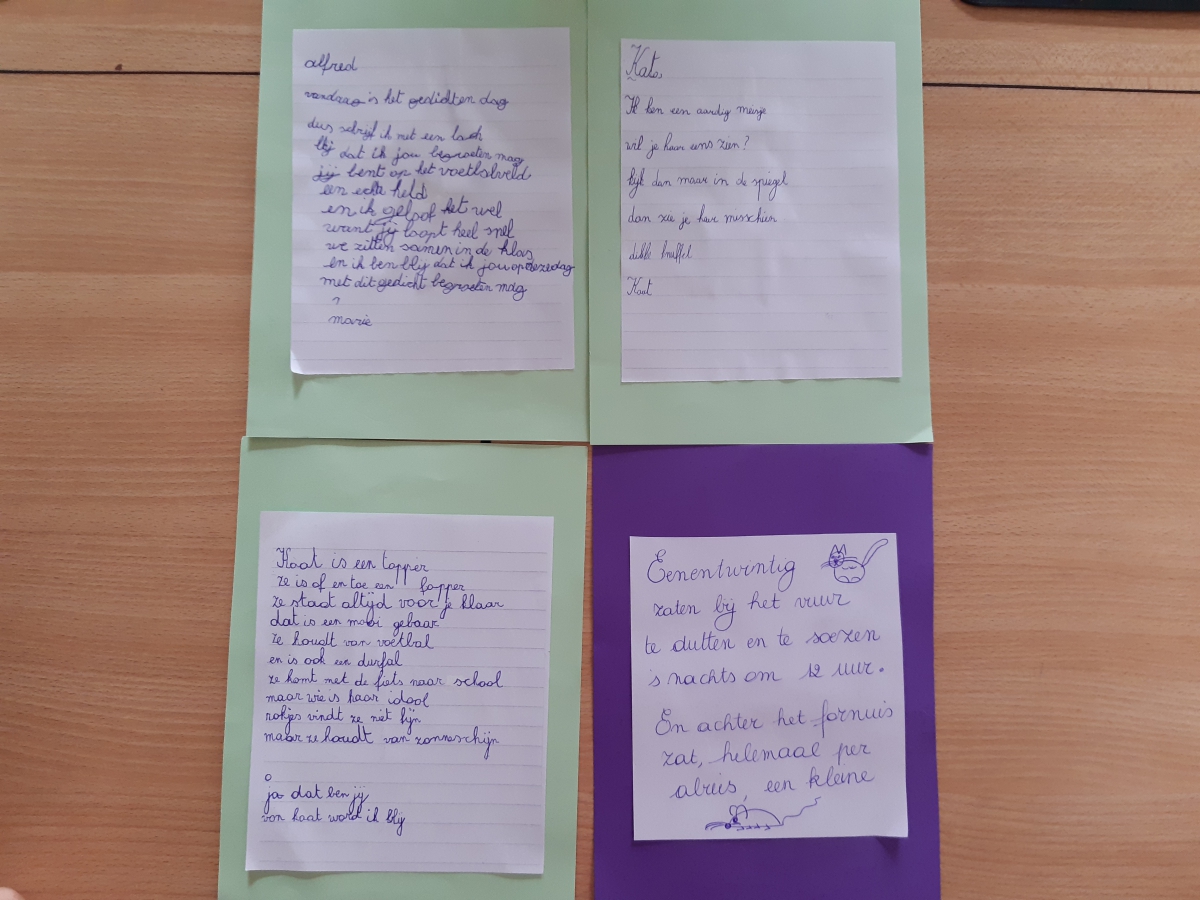 alfred
vandaag is het gedichten dag
dus schrijf ik met een lach
blij dat ik jou begroeten mag
jij bent op het voetbalveld
een echte held
en ik geloof het wel
want jij loopt heel snel
we zitten samen in de klas
en ik ben blij dat ik jou op deze dag
met dit gedicht begroeten mag
?
marie
Kato
Ik ben een aardig meisje
wil je haar eens zien?
kijk dan maar in de spiegel
dan zie je haar misschien
dikke knuffel
Kaat
Kaat is een topper
ze is af en toe een fopper
ze staat altijd voor je klaar
dat is een mooi gebaar
ze houdt van voetbal
en is ook een durfal
ze komt met de fiets naar school
maar wie is haar idool
rokjes vindt ze niet fijn
maar ze houdt van zonneschijn
o
ja dat ben jij
van kaat word ik blij
Eenentwintig
zaten bij het vuur
te dutten en te soezen
's nachts om 12 uur.
En achter het fornuis
zat, helemaal per
abuis, een kleine